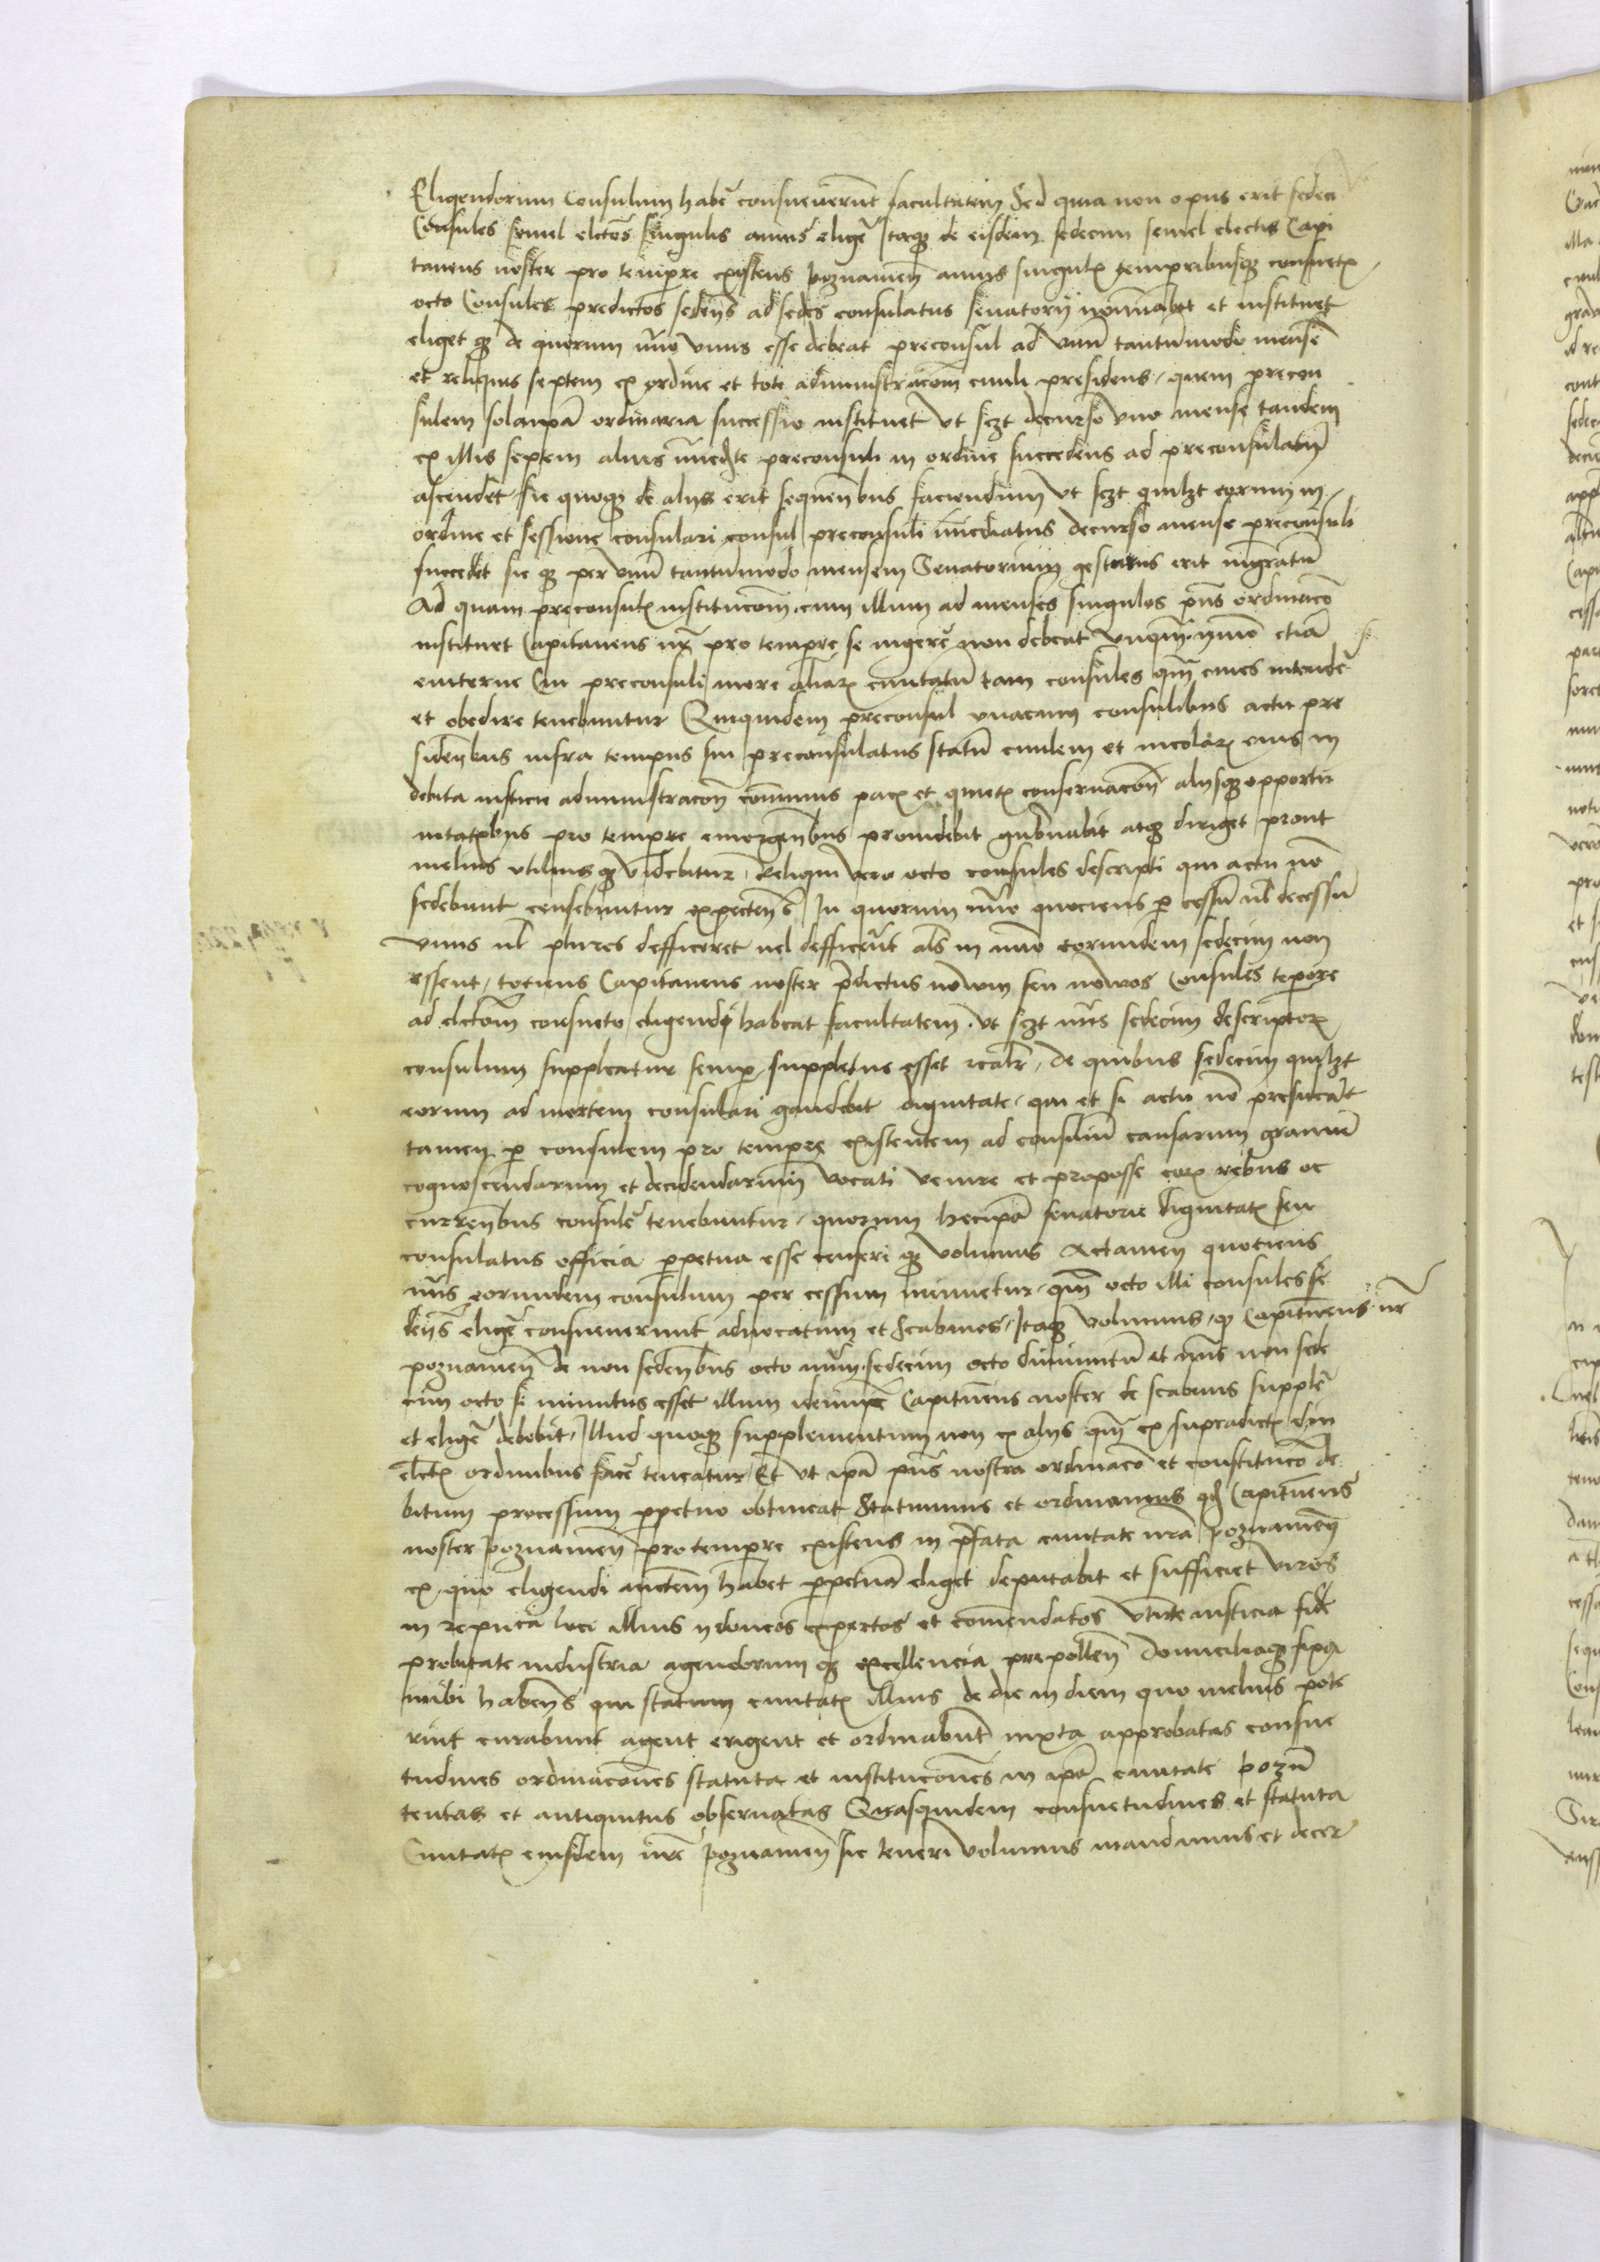 Eligendorum Consulum habē consueverunt facultatem Sed quia non opus erit sedeci
Consules semel elctos singulis annis eligē Itaqꝫ de eisdem sedecim semel electis Capi
taneus noster pro tempore existens poznanien̄ annis singulꝫ temporibusqꝫ consuetꝫ
octo Consules predictos sedens̄ ad sedes consulatus senatorij nominabit et instituet
eliget qꝫ de quorum nūo vnus esse debeat preconsul ad vnū tantummodo mensē
et reliquis septem ex ordine et tote administracōni ciuili presidens, quem precon
sulem solaipā ordinaria successio instituet vt sczt decurso vno mense tandem
ex illis septem alius imēdte preconsuli in ordine succedens ad preconsulatū
ascendet, sic quoqꝫ de alijs erit sequenbus faciendum vt sczt quilzt eorum in
ordine et sessione consulari consul preconsuli imediatus decurso mense preconsuli
succedet sic qꝫ per vnū tantummodo mensem Senatorium gesturus erit mgratū
Ad quam preconsulꝫ institucōm, cum illum ad menses singulos pns̄ ordinacō
instituet Capitaneus nr̄ pro tempore se ingerē non debeat vnqm̄, ymmo etiā
Cui preconsuli more aliaꝝ ciuitatū tam consules qm̄ ciues intendē
et obedire tenebuntur Quiquidem preconsul vnacum consulibus actu pre
sidenbus infra tempus sui preconsulatus statū ciuilem et incolaꝝ eius in
debita iusticie administracōn cōmunis pacꝫ et quietꝫ conseruacōn alijsqꝫ opportu
nitatibus pro tempore emergnbus prouidebit gubnabit atqꝫ diriget prout
melius vtiliusqꝫ videbitur, Reliqui vero octo consules descripti qui actu nō
sedebunt censebuntur expectens̄ In quorum nūo quociens ꝑ cessū vl̄ decessū
vnus vl̄ plures defficeret vel defficeret als̄ in nūo eorundem sedecim non
essent, totiens Capitaneus noster p̄dictus nowum seu nowos Consules tēpore
ad elctōm consueto eligendi habeat facultatem, vt sczt nūs sedecim descriptoꝝ
consulum suppleatur semꝑ suppletus esset realr̄, de quibus sedecim quilzt
eorum ad mortem consulari gaudebit dignitate, qui et si actu nō presideāt
tamen ꝑ consulem pro tempore existentem ad consiliū causarum grauiū
cognoscendarum et decidendarum vocati venire et proposse eoꝝ rebus oc
currenbus consulē tenebuntur, quorum hecipā senatorie dignitatꝫ seu
consulatus officia ꝑpetua esse censeri qꝫ volumus Actamen quotiens
nūs eorundem consulum per cessum minuetur, qm̄ octo illi consules se
dens̄ eligē consueuerunt aduocatum et Scabinos, Itaqꝫ volumus, qꝫ Capitaneus nr̄
poznanien̄ de non sedenbus octo nūm sedecim octo diminutū et nūs non sede
cim octo si minutus esset illum idemipē Capitaneus noster de scabinis supplē
et eligē debebit, Illud quoqꝫ supplementum non ex alijs qm̄ ex supradictꝫ
elctꝫ ordinibus facē teneatur, Et vt ipā pns̄ nostra ordinacō et constitucō de
bitum processum ꝑpetuo obtineat Statuimus et ordinamus qd̄ Capitaneus
noster poznanien̄ pro tempore existens in p̄fata ciuitate nrā poznanien̄
ex quo eligendi auctem habet ꝑpetuā eliget deputabit et sufficiet viros
in repuca loci illius ydoneos expertos et comendatos vtute iusticia fide
probitate industria agendorum qꝫ excellencia prepollen̄ domiciliaqꝫ fixa
inibi habens̄ qui statum ciuitatꝫ illius de die in diem quo melius pote
rint curabunt agent erigent et ordinabunt iuxta approbatas consue
tudines ordinacones statuta et institucones in ipā ciuitate pozn̄
tentas et antiquitus obseruatas Quasquidem consuetudines et statuta
Ciuitatꝫ eiusdem nrē poznanien̄ sic teneri volumus mandamus et decer